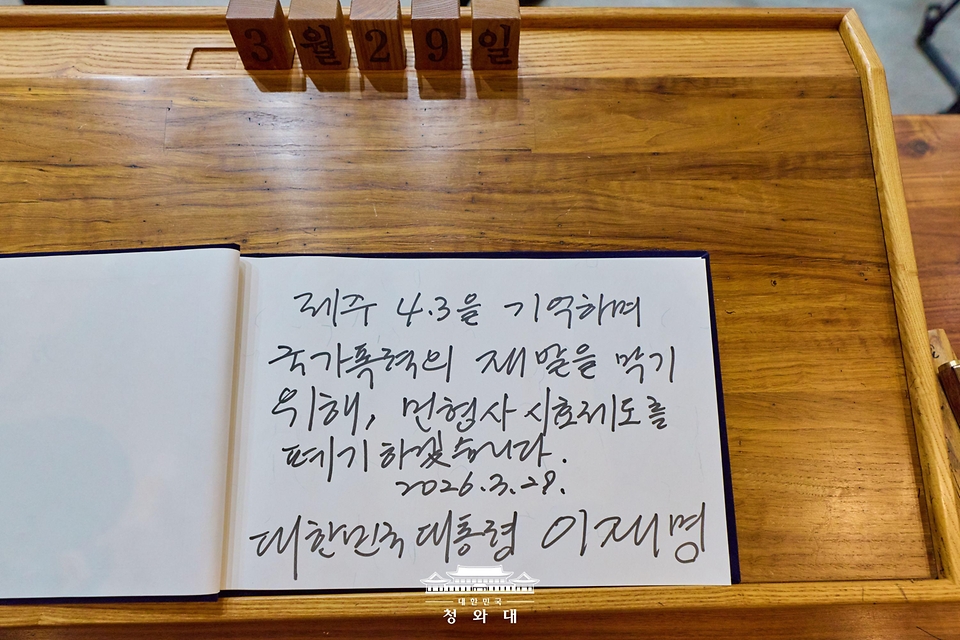 3월29일
제주 4.3을 기억하며
국가폭력의 재발을 막기
위해, 민형사 시효제도를
폐기하겠습니다.
2026.3.29.
대한민국 대통령 이재명
대한민국
청와대